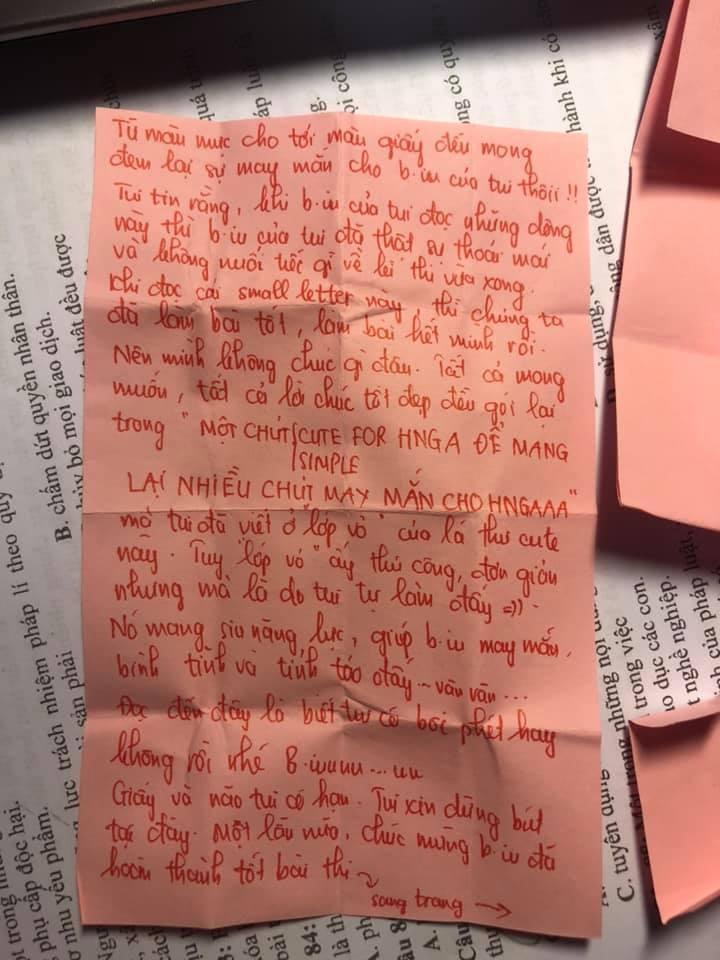 Từ màu mực cho tới màu giấy đều mong
đem lại sự may mắn cho b.iu của tui thôii !!
Tui tin rằng, khi b.iu của tui đọc những dòng
này thì b.iu của tui đã thật sự thoải mái
và không nuối tiếc gì về kì thi vừa xong.
Khi đọc cái small letter này, thì chúng ta
đã làm bài tốt, làm bài hết mình rồi.
Nên mình không chúc gì đâu. Tất cả mong
muốn, tất cả lời chúc tốt đẹp đều gói lại
trong " MỘT CHÚT CUTE FOR HNGA ĐỂ MANG
SIMPLE
LẠI NHIỀU CHÚT MAY MẮN CHO HNGAAA"
mà tui đã viết ở "lớp vỏ" của lá thư cute
này. Tuy "lớp vỏ" ấy thủ công, đơn giản
nhưng mà là do tui tự làm đấy =)).
Nó mang siu năng lực, giúp b.iu may mắn,
bình tĩnh và tỉnh táo đấy ~ vân vân ...
Đọc đến đây là biết tư có bói phét hay
không rồi nhé B.iuuuu...uu
Giấy và não tui có hạn. Tui xin dừng bút
tại đây. Một lần nữa, chúc mừng b.iu đã
hoàn thành tốt bài thi ~
sang trang →
B. chấm dứt quyền nhân thân.
bỏ mọi giao dịch.
luật đều được
lực trách nhiệm pháp lí theo quy
sản phải
phụ cấp độc hại.
nhu yếu phẩm.
84:
C. tuyển dụng
trong những nội
trong việc
dục các con.
nghề nghiệp.
của pháp luật,
hành khi có
dân được
sử dụng,
có quyền